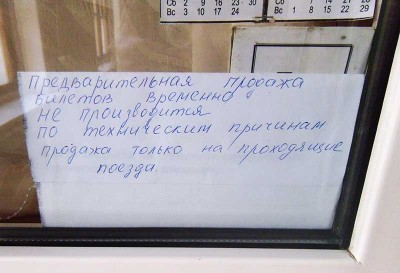 Сб 2 9 16 23-30
Вс 3 10 17 24
Вс 1 8 15 22 29
Предварительная продажа
билетов временно
не производится
по техническим причинам
продажа только на проходящие
поезда.